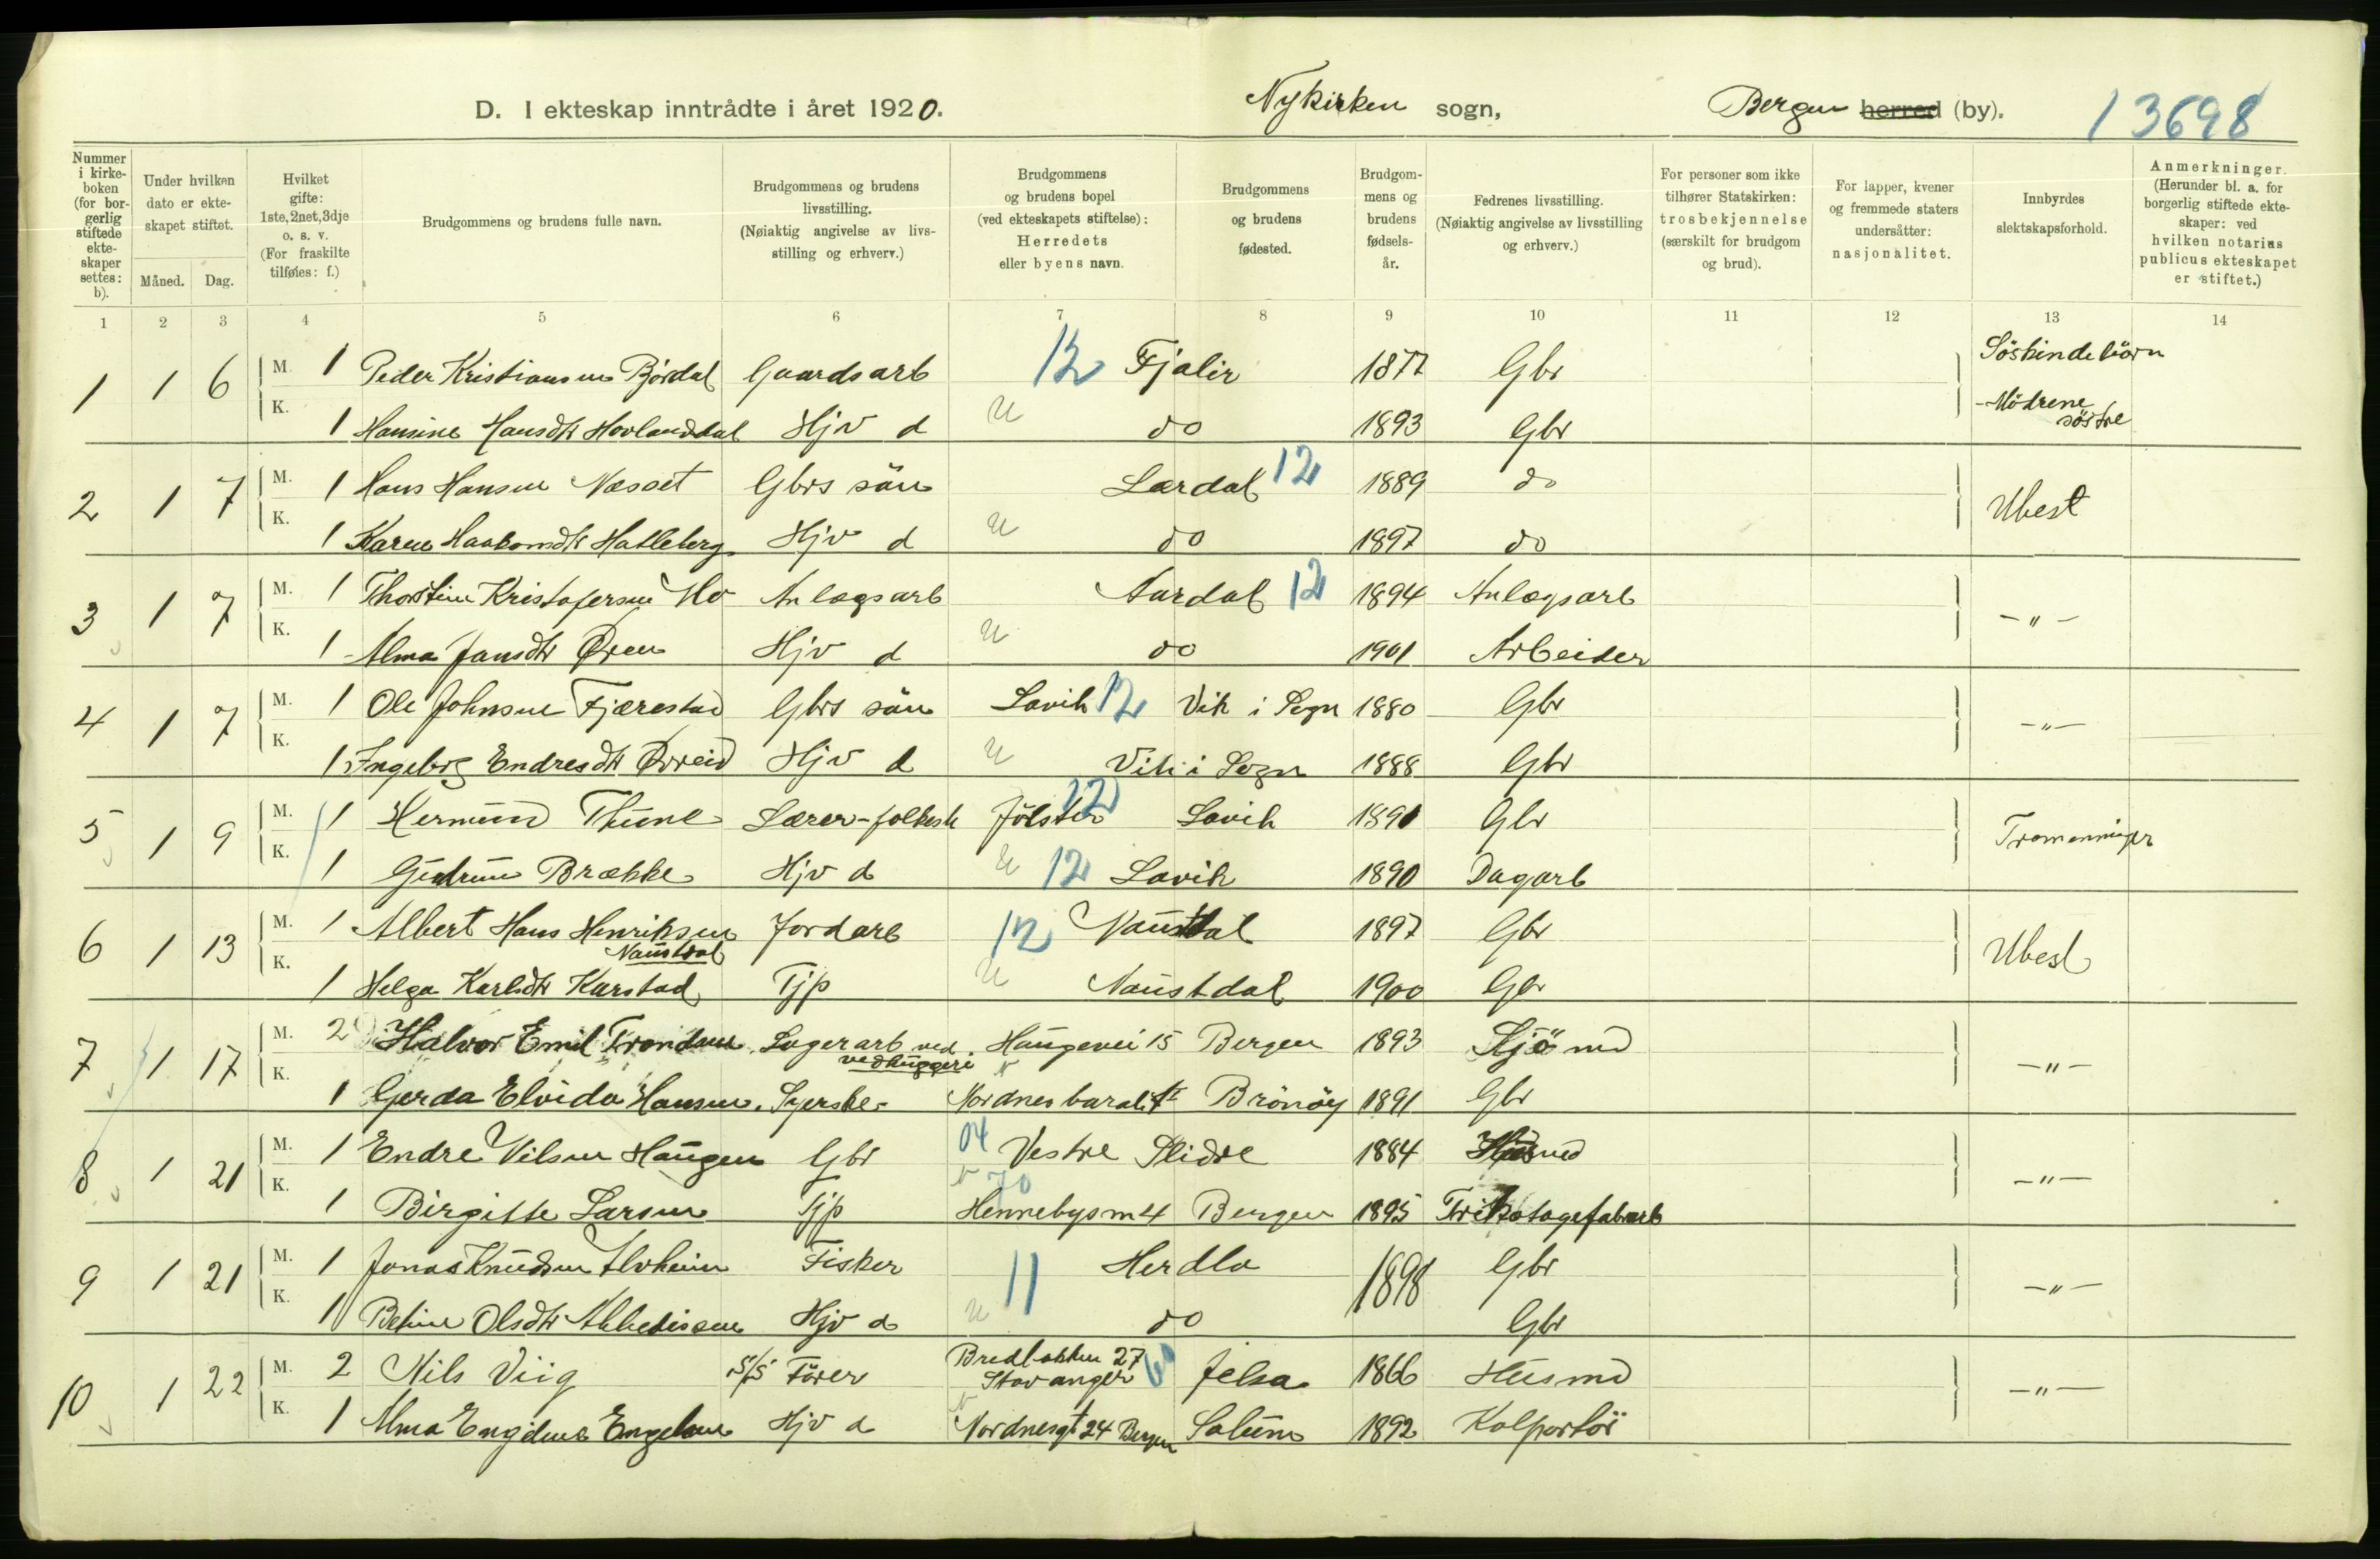 D. I ekteskap inntrådte i året 1920. Nykirken sogn, Bergen herred (by). 13698
Nummer i kirkeboken (for borgerlig stiftede ekteskaper settes: b).
Under hvilken dato er ekteskapet stiftet.
Måned. Dag.
Hvilket gifte: 1ste, 2net, 3dje o. s. v. (For fraskilte tilføies: f.)
Brudgommens og brudens fulle navn.
Brudgommens og brudens livsstilling. (Nøiaktig angivelse av livsstilling og erhverv.)
Brudgommens og brudens bopel (ved ekteskapets stiftelse): Herredets eller byens navn.
Brudgommens og brudens fødested.
Brudgommens og brudens fødselsår.
Fedrenes livsstilling. (Nøiaktig angivelse av livsstilling og erhverv.)
For personer som ikke tilhører Statskirken: trosbekjennelse (særskilt for brudgom og brud).
For lapper, kvener og fremmede staters undersåtter: nasjonalitet.
Innbyrdes slektskapsforhold.
Anmerkninger. (Herunder bl. a. for borgerlig stiftede ekteskaper: ved hvilken notarius publicus ekteskapet er stiftet.)
1 2 3 4 5 6 7 8 9 10 11 12 13 14
1 1 6 M. 1 Peder Kristiansen Bjørdal Gaardsarb 12 Fjaler 1877 Gbr Söskindebörn
K. 1 Hansine Hansdtr Hovlanddal Hjv d u do 1893 Gbr -Mödrene söstre
2 1 7 M. 1 Hans Hansen Næsset Gbrs sön Lærdal 12 1889 do Ubesl
K. 1 Karen Haakonsdtr Hatleberg Hjv d u do 1897 do
3 1 7 M. 1 Thorstein Kristofersen Mo Anlægsarb Aardal 12 1894 Anlægsarb -"-
K. 1 Alma Jansdtr Øren Hjv d u do 1901 Arbeider
4 1 7 M. 1 Ole Johnsen Fjærestad Gbrs sön Lavik 12 Vik i Sogn 1880 Gbr -"-
K. 1 Ingeborg Endresdtr Øvreid Hjv d u Vik i Sogn 1888 Gbr
5 1 9 M. 1 Hermund Thune Lærer-folkesk Jölster 12 Lavik 1891 Gbr Tremenninger
K. 1 Gudrun Brække Hjv d u 12 Lavik 1890 Dagarb
6 1 13 M. 1 Albert Hans Henriksen Naustdal Jordarb 12 Naustdal 1897 Gbr Ubesl
K. 1 Helga Karlsdtr Karstad Tjp u Naustdal 1900 Gbr
7 1 17 M. 2 Halvor Emil Trondsen Lagerarb ved vedhuggeri Haugevei 15 Bergen 1893 Sjömd -"-
K. 1 Gerda Elvida Hansen Syerske Nordnes barak Brönöy 1891 Gbr
8 1 21 M. 1 Endre Nilsen Haugen Gbr 04 Vestre Slidre 1884 Husmd -"-
K. 1 Birgitte Larsen Tjp 70 Hennebysm 4 Bergen 1895 Trikotagefabarb
9 1 21 M. 1 Jonas Knudsen Alvheim Fisker 11 Herdla 1898 Gbr -"-
K. 1 Olsdtr Hjv d u do Gbr
10 1 22 M. 2 Nils Viig S/S Förer Bredbakken 27 Stavanger Jelsa 1866 Husmd -"-
K. 1 Alma Engelsen Hjv d Nordnesgt 24 Bergen Solum 1892 Kolportör